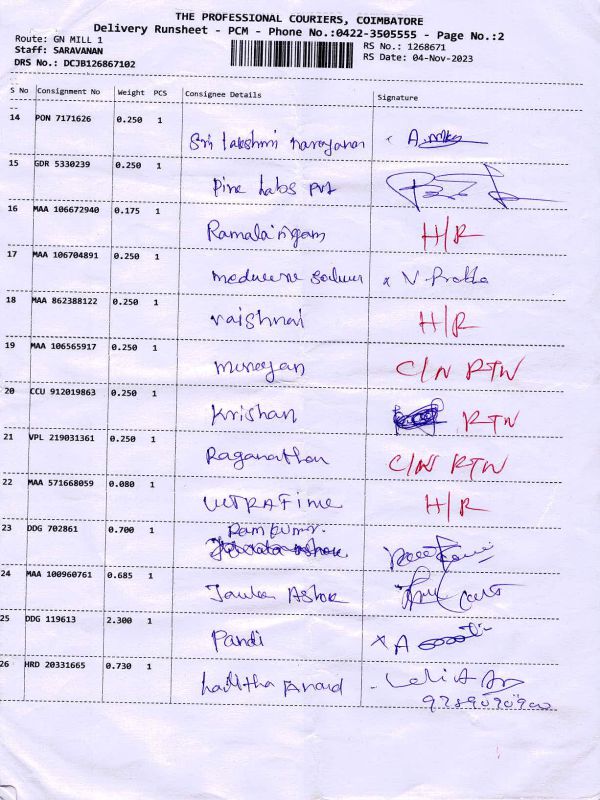 THE PROFESSIONAL COURIERS, COIMBATORE
Delivery Runsheet - PCM - Phone No.:0422-3505555 - Page No.:2
Route: GN MILL 1 RS No.: 1268671
Staff: SARAVANAN RS Date: 04-Nov-2023
DRS No.: DCJB126867102
S No Consignment No Weight PCS Consignee Details Signature
14 PON 7171626 0.250 1 Sri Lakshmi narayanan
15 GDR 5330239 0.250 1 Pine Labs Pvt
16 MAA 106672940 0.175 1 Ramalaingam H/R
17 MAA 106704891 0.250 1 x V. Prabha
18 MAA 862388122 0.250 1 vaishnai H/R
19 MAA 106565917 0.250 1 murugan C/N RTN
20 CCU 912019863 0.250 1 Krishan RTN
21 VPL 219031361 0.250 1 Raganathan C/N RTN
22 MAA 571668059 0.080 1 ULTRATime H/R
23 DDG 702861 0.700 1 Ram kumar.
24 MAA 100960761 0.685 1 Ashok
25 DDG 119613 2.300 1 Pandi x A
26 HRD 20331665 0.730 1 Lalitha Anand